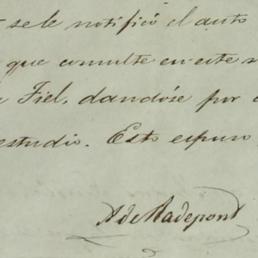 se le notificó el auto
que consulte en este
Fiel, dandóse por
estudio. Esto espuso
A de Radepont